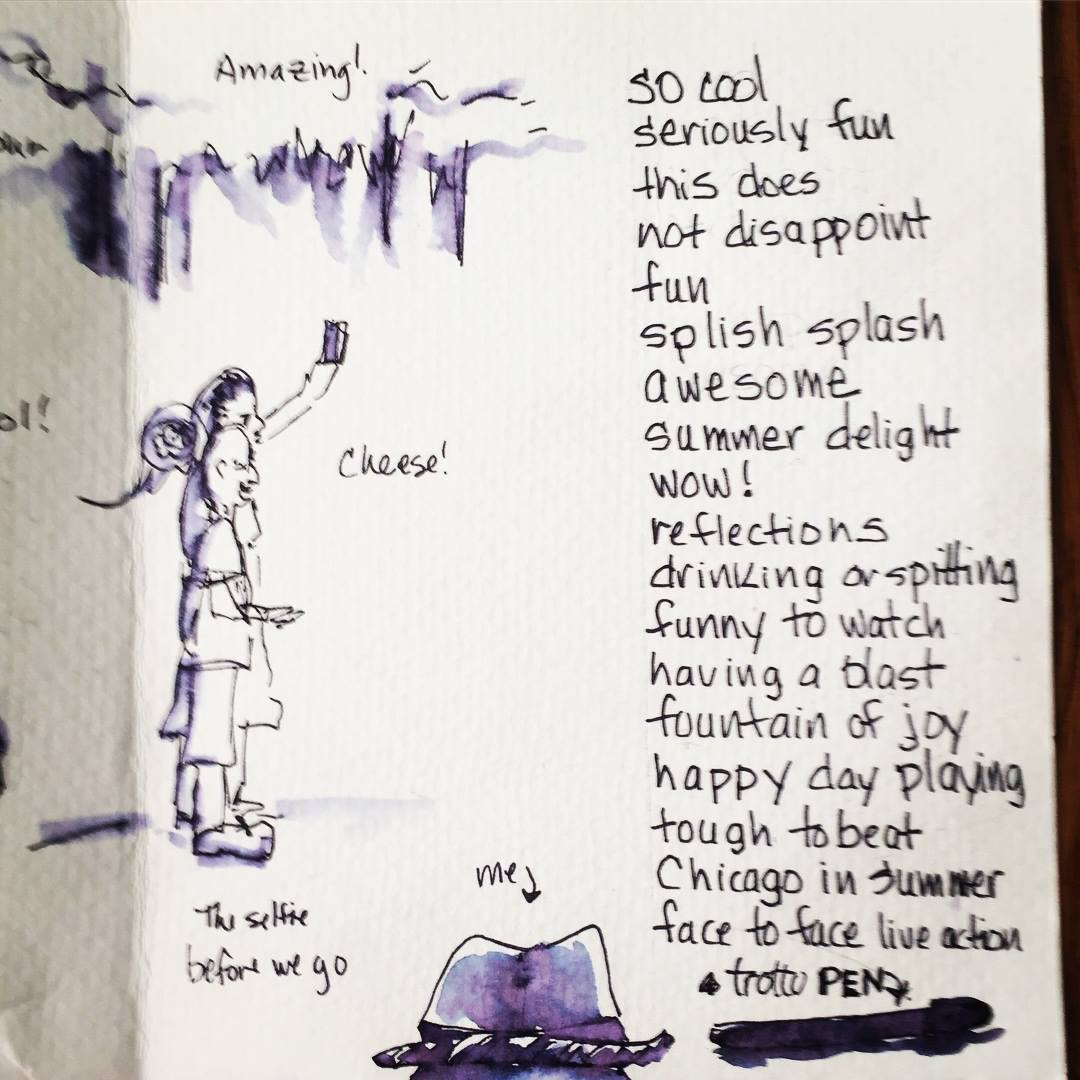 Amazing!
ol!
Cheese!
The selfie
before we go
me
so cool
seriously fun
this does
not disappoint
fun
splish splash
awesome
summer delight
wow!
reflections
drinking or spitting
funny to watch
having a blast
fountain of joy
happy day playing
tough to beat
Chicago in summer
face to face live action
PEN